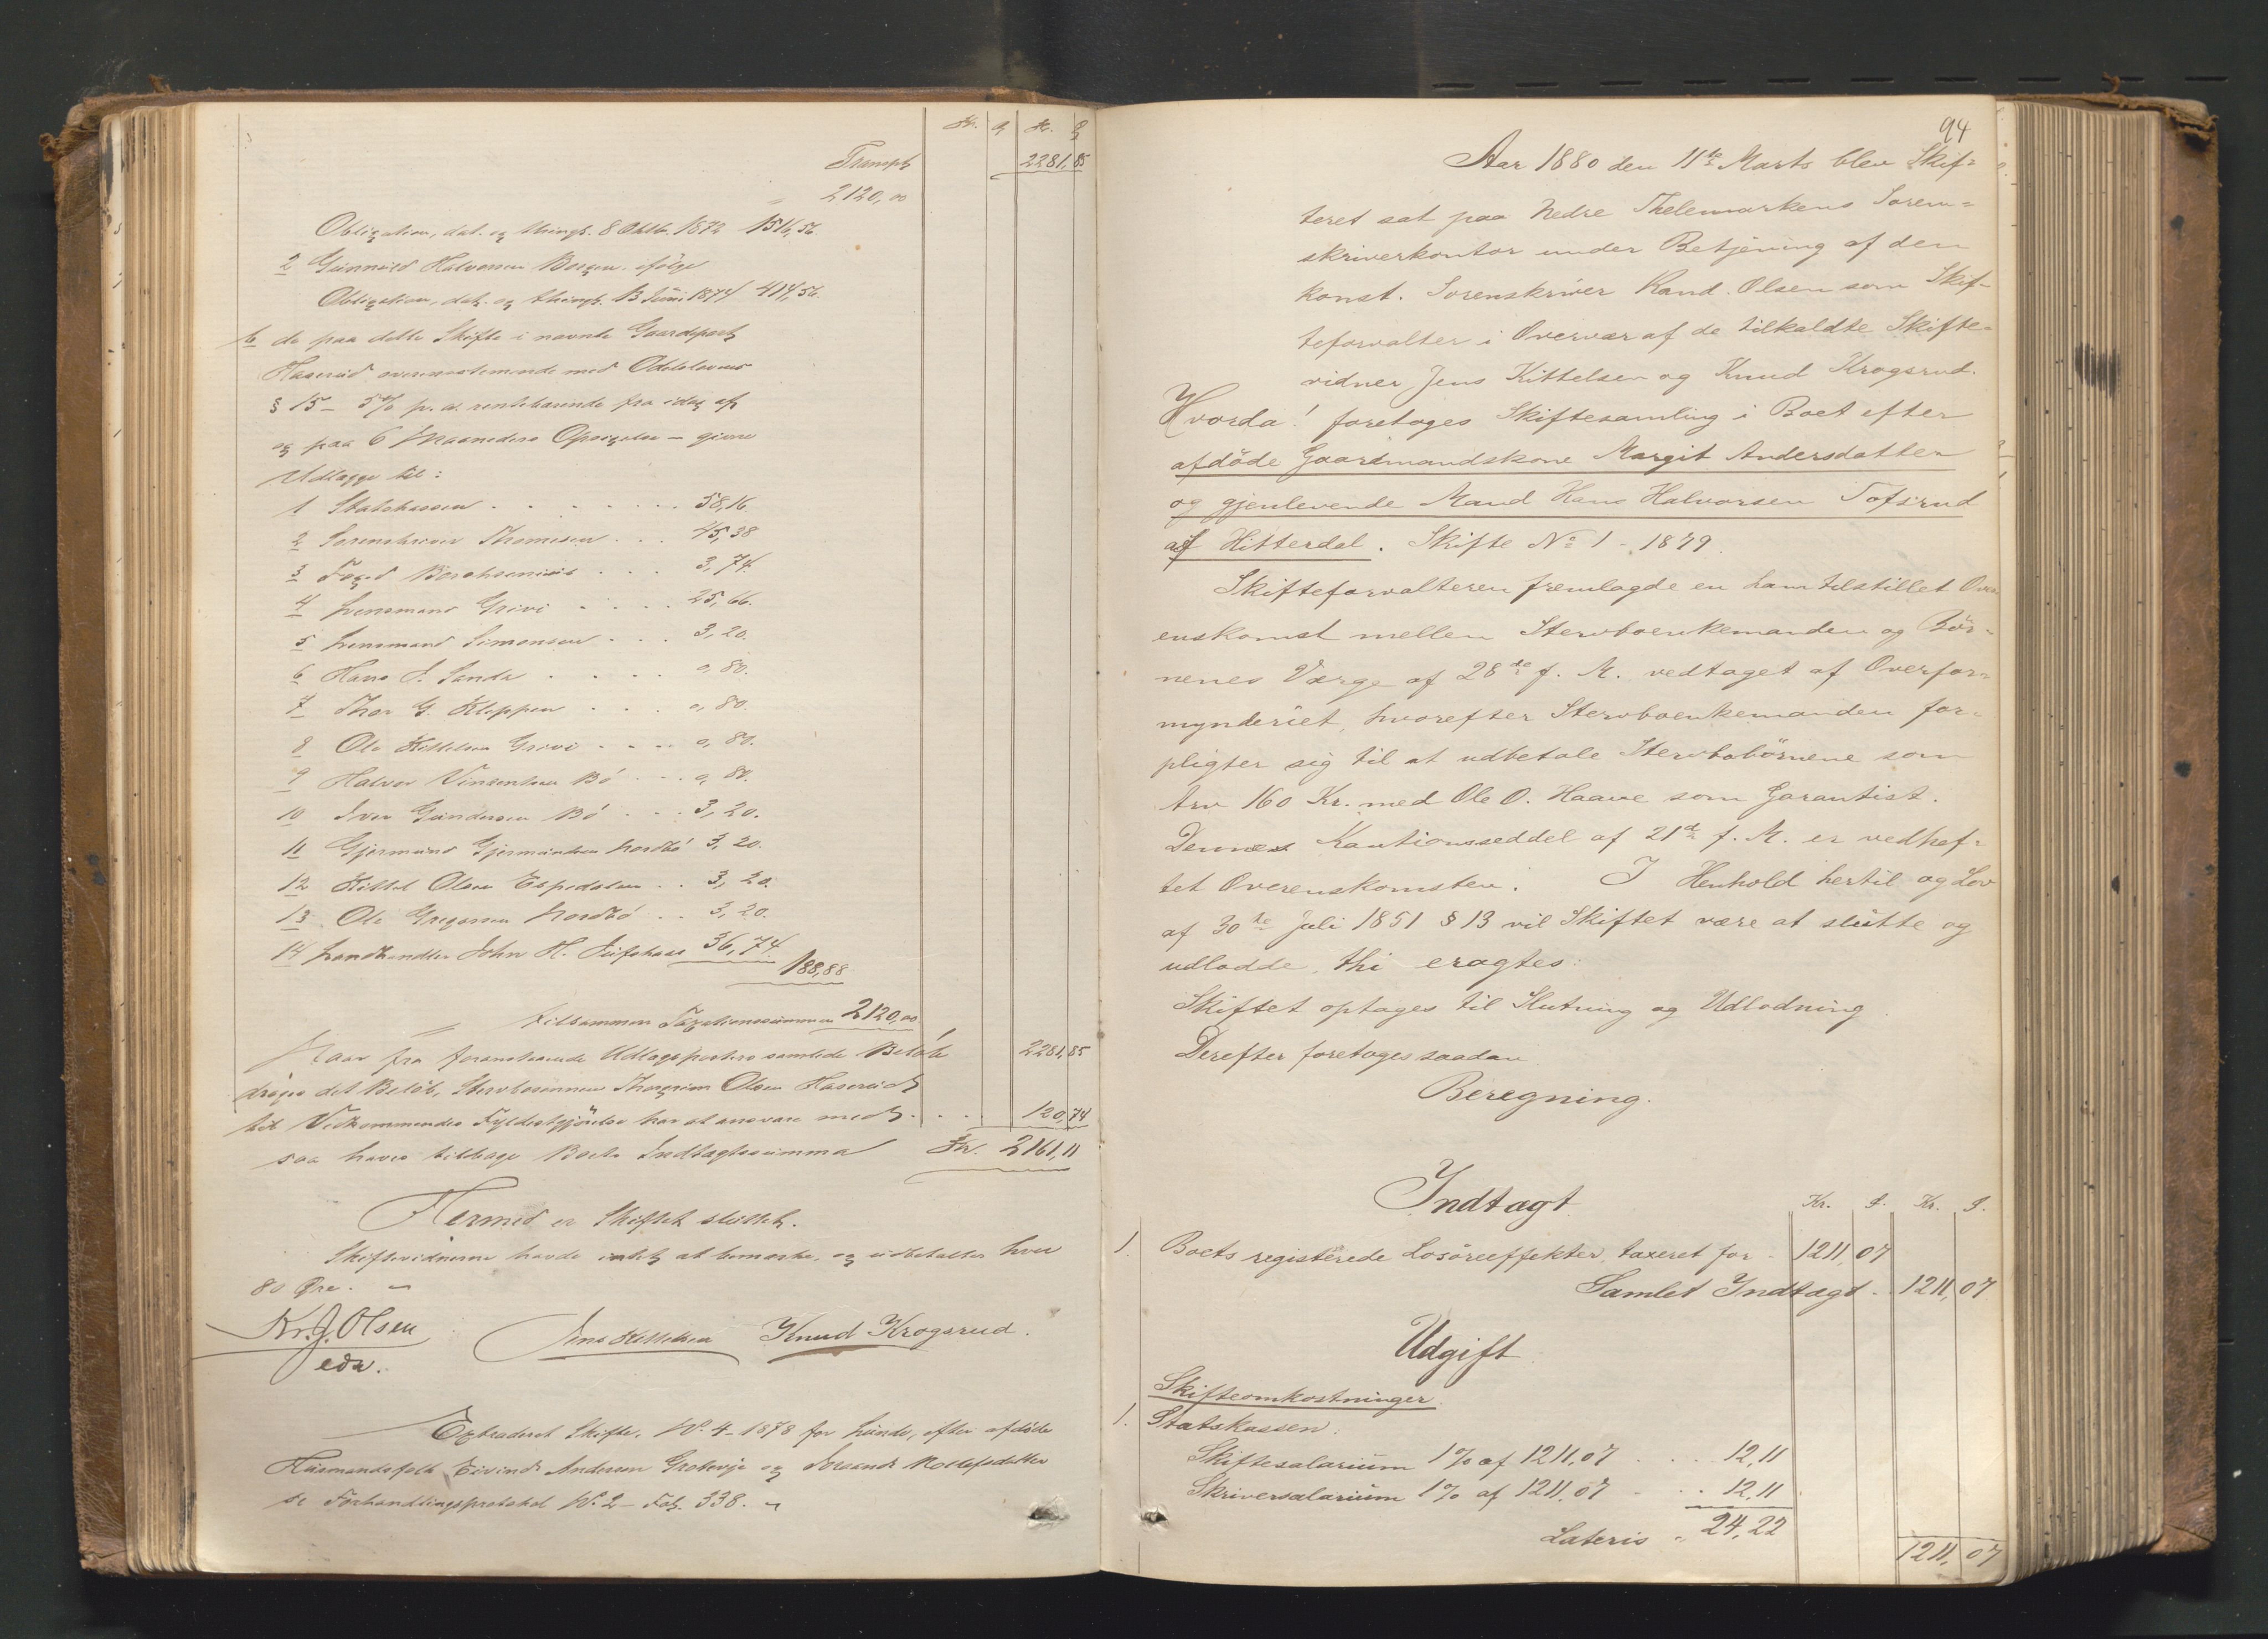 Kr. Ø Kr. Ø
Transpt 2281,85
2120,00
Obligation, dat. og thingl. 8 Oktbr. 1872 1516,56
2 Gunnild Halvorsen Borgen ifölge
Obligation, dat. og thingl. 13 Juni 1874 414,56.
b de paa dette Skifte i nævnte Gaardpart
Haserud overensstemmende med Odelslovens
§ 15 - 5% p. a. rentebærende fra idag af
og paa 6 Maaneders Opsigelse - gjorte
Udlægge til:
1 Statskassen . . . . . 58,16
2 Sorenskriver Thomesen . . . 45,38
3 Foged Borchsenius . . . 3,74.
4 Lensmand Grivi . . . . 25,66.
5 Lensmand Simonsen . . . 3,20.
6 Hans J. Sanda . . . . 0,80.
7 Thor G. Kleppen . . . 0,80.
8 Ole Kittelsen Grivi . . . . 0,80.
9 Halvor Vinzentsen Bö . . . 0,80.
10 Iver Gundersen Bö . . . 3,20.
11 Gjermund Gjermundsen Nordbö 3,20.
12 Kittel Olsen Espedalen . . 3,20.
13 Ole Gregersen Nordbö . . 3,20.
14 Landhandler John H. 36,74.
188,88
tilsammen Taxationssummen 2120,00
Naar fra foranstaaende Udlægsposters samlede Belöb 2281,85
drages det Belöb, Stervbosönnen Thorgrim Olsen Haserud
til Vedkommendes Fyldestgjörelse har at ansvare med . . . 120,74
saa haves tilbage Boets Indtægtssumma Kr. 2161,11
Hermed er Skiftet sluttet.
Skiftevidnerne havde intet at bemærke, og udbetaltes hver
80 Öre. -
Kr. J. Olsen Jens Kittelsen Knud Krogsrud.
edv.
Extraderet Skifte, No. 4 - 1878 for Lunde, efter afdöde
Huusmandsfolk Eivind Andersen Grotevje og Jorand Rollefsdatter
se Forhandlingsprotokol No. 2 - Fol. 338. -
94
Aar 1880 den 11te Marts blev Skif=
teret sat paa Nedre Thelemarkens Soren=
skriverkontor under Betjening af den
konst. Sorenskriver Kand. Olsen som Skif=
teforvalter i Overvær af de tilkaldte Skifte=
vidner Jens Kittelsen og Knud Krogsrud.
Hvorda! foretoges Skiftesamling i Boet efter
afdöde Gaardmandskone Margit Andersdatter
og gjenlevende Mand Hans Halvorsen Tofsrud
af Hitterdal. Skifte No 1 - 1879.
Skifteforvalteren fremlagde en ham tilstillet Over
enskomst mellem Stervboenkemanden og Bör=
nenes Værge af 28de f. M. vedtaget af Overfor=
mynderiet, hvorefter Stervboenkemanden for=
pligter sig til at udbetale Stervbobörnene som
Arv 160 Kr. med Ole O. Haave som Garantist.
Dennes Kautionsseddel af 21de f. M. er vedhef=
tet Overenskomsten. I Henhold hertil og Lov
af 30te Juli 1851 § 13 vil Skiftet være at slutte og
udlodde, thi eragtes:
Skiftet optages til Slutning og Udlodning.
Derefter foretoges saadan
Beregning.
Indtægt Kr. Ø. Kr. Ø.
1. Boets registerede Losöreeffekter, taxeret for . 1211,07
Samlet Indtægt . 1211,07
Udgift.
Skifteomkostninger.
1. Statskassen.
Skiftesalarium 1% af 1211,07 . . . . 12,11
Skriversalarium 1% af 1211,07 . . . 12,11
Lateris „ 24,22
1211,07